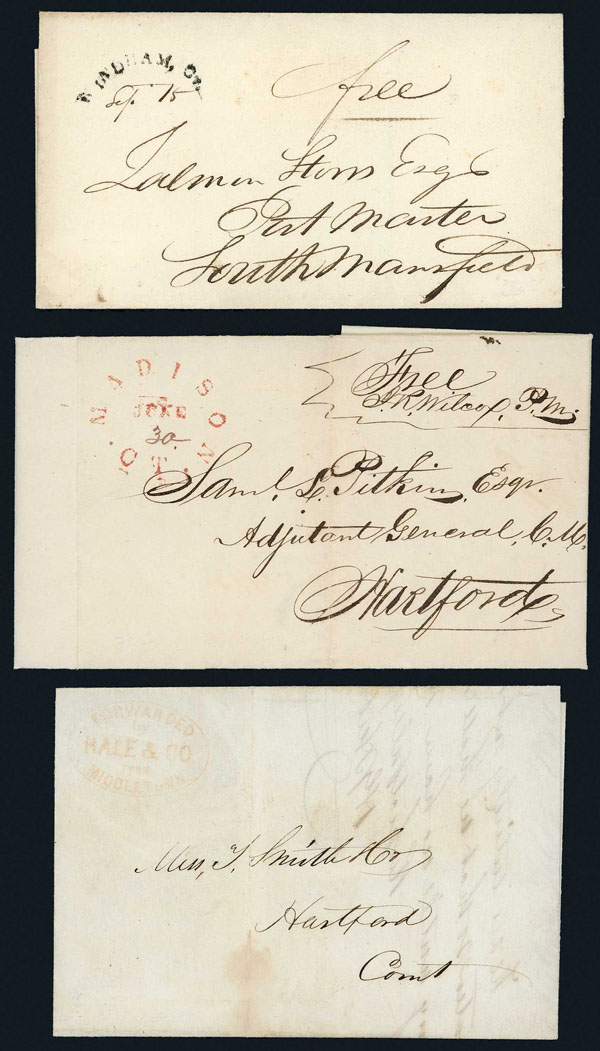 WINDHAM, CT.
free
Zalmon Storrs Esq
Post Master
South Mansfield
MADISON CT.
JUNE
30
Free
J.R. Wilcox, P.M.
Saml. L. Pitkin, Esqr.
Adjutant General, C.M.
Hartford
FORWARDED
by
HALE & CO
FROM
MIDDLETOWN
Mess, T. Smith & Co
Hartford
Connt